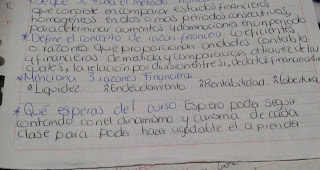 que consiste en comparar estados financieros
homogéneos en dos o mas periodos consecutivos,
para determinar aumentos y disminuciones en un periodo
* Define el concepto de razon financiera coeficientes
o razones que proporcionan unidades contable
y financieras de medida y comparacion a traves de las
cuales, la relacion por division entre si, de datos financieros
* Menciona 3 razones financieras
Liquidez Endeudamiento Rentabilidad Cobertura
* Qué esperas del curso Espero poder seguir
contando con el dinamismo y carisma de cada
clase para poder hacer agradable el aprender